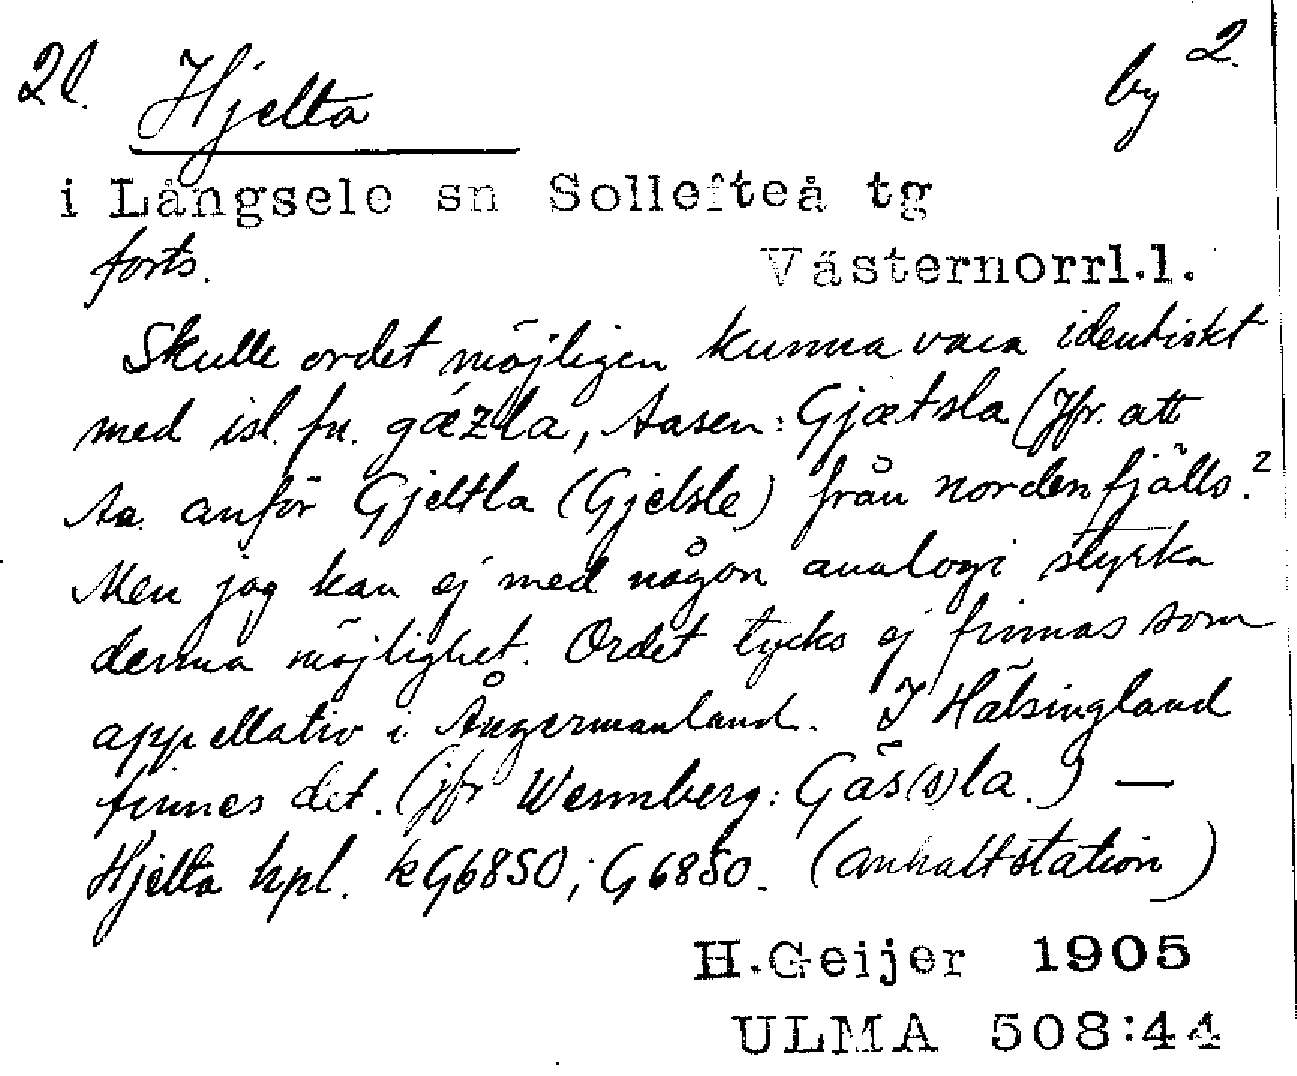 2l. Hjelta by 2.
i Långsele sn Sollefteå tg
forts. Västernorrl.l.
Skulle ordet möjligen kunna vara identiskt
med isl. fn. gǽzla, Aasen: Gjætsla (Jfr. att
Aa. anför Gjeltla (Gjelsle) från nordenfjälls.?
Men jag kan ej med någon analogi styrka
denna möjlighet. Ordet tycks ej finnas som
appellativ i Ångermanland. I Hälsingland
finnes det. (jfr Wennberg: Gäs(s)la.) —
Hjelta hpl. kG6850; G6850. (anhaltstation)
H.Geijer 1905
ULMA 508:44